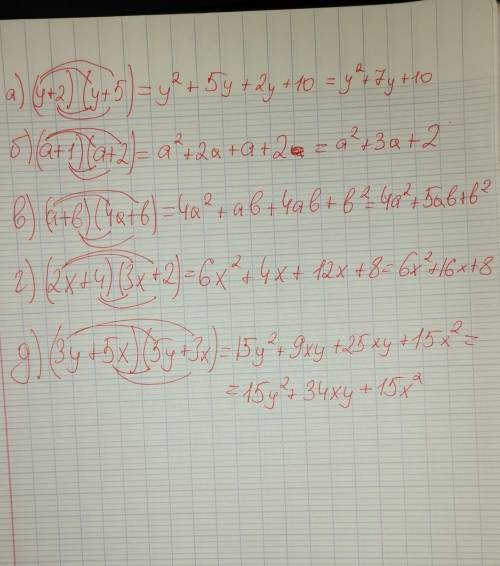 а) (y+2)(y+5) = y² + 5y + 2y + 10 = y² + 7y + 10
б) (a+1)(a+2) = a² + 2a + a + 2 = a² + 3a + 2
в) (a+b)(4a+b) = 4a² + ab + 4ab + b² = 4a² + 5ab + b²
г) (2x+4)(3x+2) = 6x² + 4x + 12x + 8 = 6x² + 16x + 8
д) (3y+5x)(5y+3x) = 15y² + 9xy + 25xy + 15x² =
= 15y² + 34xy + 15x²